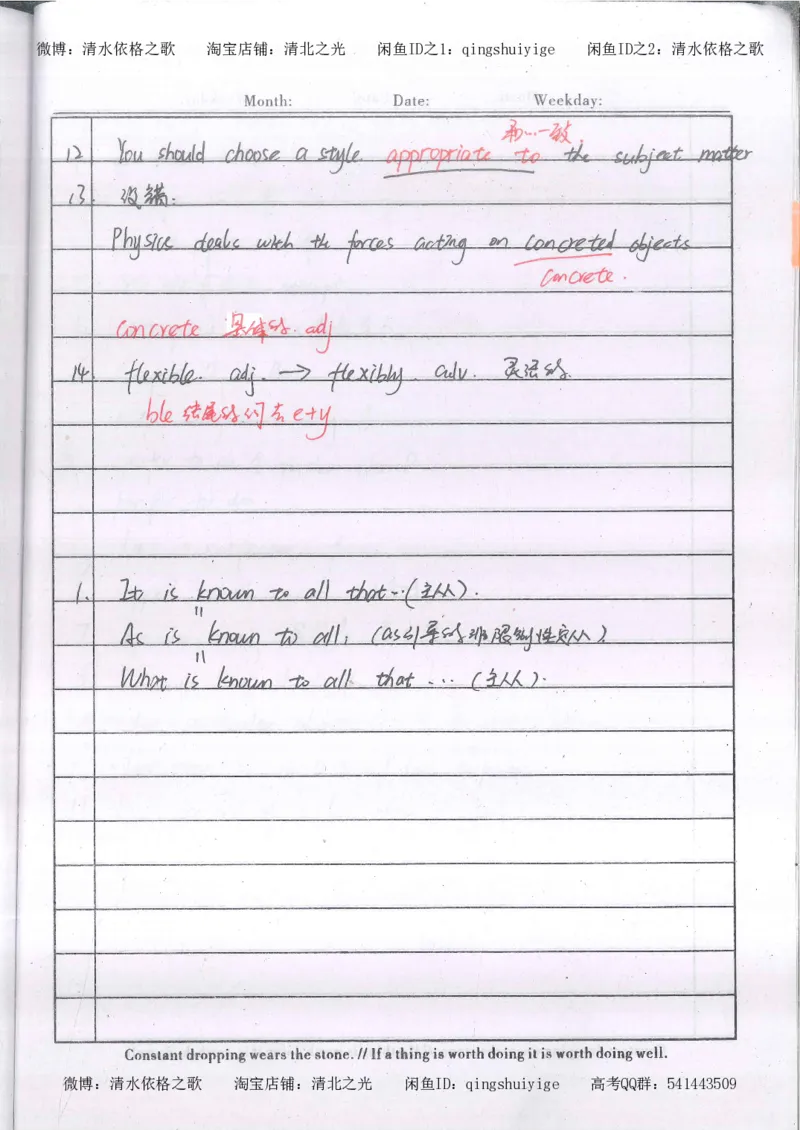 微博：清水依格之歌 淘宝店铺：清北之光 闲鱼ID之1：qingshuiyige 闲鱼ID之2：清水依格之歌
Month: Date: Weekday:
和…一致
12 You should choose a style appropriate to the subject matter
13. 改错：
Physics deals with the forces acting on concreted objects
concrete.
concrete 具体的. adj
14. flexible. adj. → flexibly. adv. 灵活的
ble 结尾的 去e+y
1. It is known to all that…(主从).
=
As is known to all, (as引导的非限制性定从)
=
What is known to all that … (主从).
Constant dropping wears the stone. // If a thing is worth doing it is worth doing well.
微博：清水依格之歌 淘宝店铺：清北之光 闲鱼ID：qingshuiyige 高考QQ群：541443509